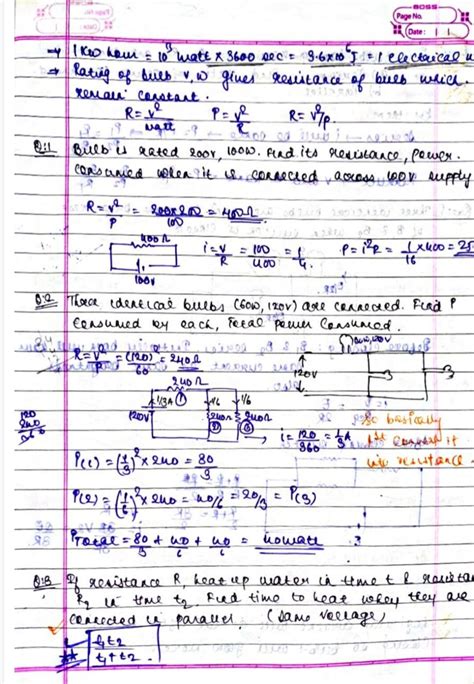 BOSS
Page No.
Date: | |
→ 1 KW hour = 10³ watt × 3600 sec = 3.6×10⁶ J = 1 electrical u
→ Rating of bulb V, W gives resistance of bulb which
remain constant.
R = V²/watt P = V²/R R = V²/P
Q:1 Bulb is rated 200V, 100W. Find its resistance, power
consumed when it is connected across 100V supply
R = V²/P = 200×200/100 = 400Ω
400Ω
100V
i = V/R = 100/400 = 1/4
P = i²R = 1/16 × 400 = 25
Q:2 Three identical bulbs (60W, 120V) are connected. Find P
consumed by each, Total power consumed.
R = V²/P = (120)²/60 = 240Ω
60W, 120V
120V
240Ω
1/3A ① 1/6 1/6
120V 240Ω ② 240Ω ③
120
240
360
i = 120/360 = 1/3 A
So basically
convert it
into resistance
P(1) = (1/3)² × 240 = 80/3
P(2) = (1/6)² × 240 = 40/6 = 20/3 = P(3)
PTotal = 80/3 + 40/6 + 40/6 = 40 watt
Q:3 If resistance R, heat up water in time t & resistan
R₂ in time t₂ Find time to heat when they are
connected in parallel. (same voltage)
t₁t₂/t₁+t₂